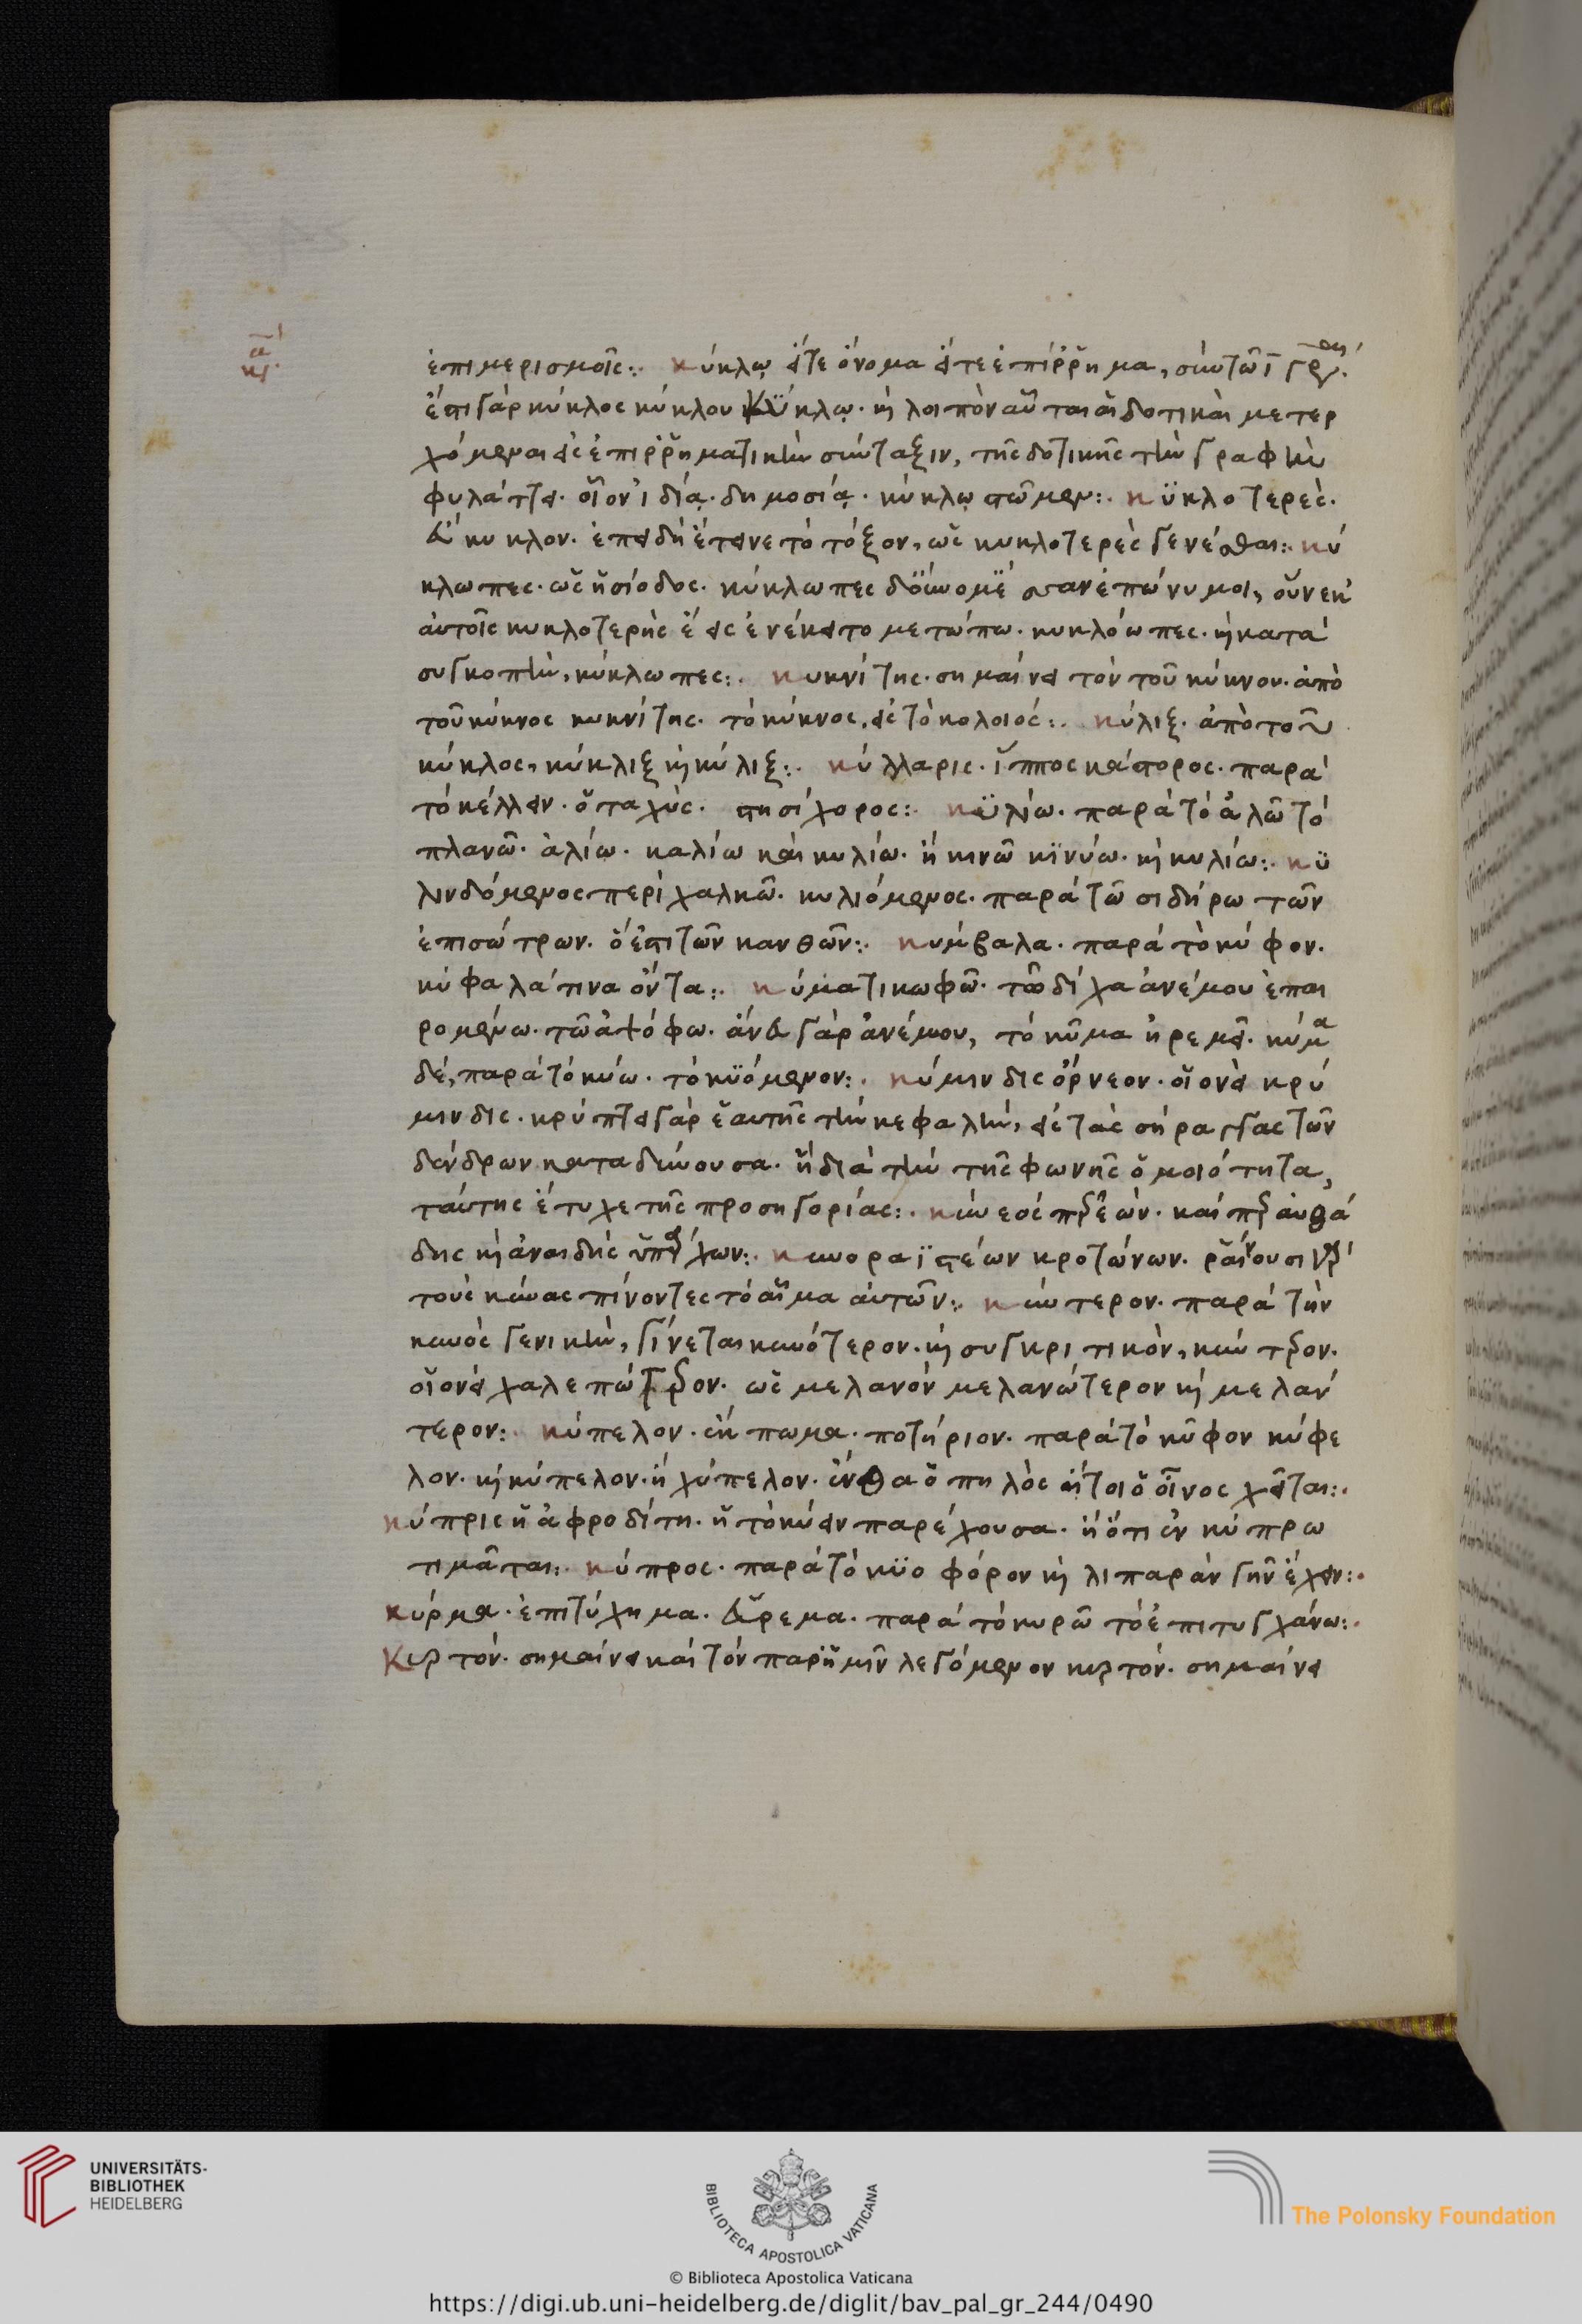 ἐπιμερισμοῖς:. κύκλῳ εἴτε ὄνομα εἴτε ἐπίρρημα, σὺν τῶ ῑ
ἔστι γὰρ κύκλος κύκλου κύκλῳ. κὶ λοιπὸν αὗται αἱ δοτικαὶ μετερ
χόμεναι εἰς ἐπιρρηματικὴν σύνταξιν, τῆς δοτικῆς τὴν γραφὴν
φυλάττει. οἷον ἰδίᾳ. δημοσίᾳ. κύκλῳ στῶμεν:. κυκλοτερές.
εὔκυκλον. ἐπειδὴ ἔτεινε τὸ τόξον, ὡς κυκλοτερὲς γενέσθαι:. κύ
κλωπες. ὡς ἡσίοδος. κύκλωπες δ' ὄνομ' ἔσαν ἐπώνυμοι, οὕνεκ'
αὐτοῖς κυκλοτερὴς εἷς ἐνέκειτο μετώπω. κυκλόωπες. κὶ κατὰ
συγκοπὴν, κύκλωπες:. κυκνίτης. σημαίνει τὸν τοῦ κύκνον. ἀπὸ
τοῦ κύκνος κυκνίτης. τὸ κύκνος, εἰς τὸ κολοιός:. κύλιξ. ἀπὸ τοῦ
κύκλος, κύκλιξ κὶ κύλιξ:. κύλλαρις. ἵππος κάστορος. παρὰ
τὸ κέλλειν. ὁ ταχύς. στησίχορος:. κυλίω. παρὰ τὸ ἀλῶ τὸ
πλανῶ. ἀλίω. καλίω καὶ κυλίω. ἢ κινῶ κινύω. κὶ κυλίω:. κυ
λινδόμενος περὶ χαλκῶ. κυλιόμενος. παρὰ τῶ σιδήρω τῶν
ἐπισώτρων. ὅ ἐστι τῶν κανθῶν:. κύμβαλα. παρὰ τὸ κύφον.
κύφαλά τινα ὄντα:. κύματι κωφῶ. τῶ δίχα ἀνέμου ἐπαι
ρομένω. τῶ ἀψόφω. ἄνευ γὰρ ἀνέμου, τὸ κῦμα ἠρεμεῖ. κύμα
δὲ, παρὰ τὸ κύω. τὸ κυόμενον:. κύμινδις ὄρνεον. οἱονεὶ κρύ
μινδις. κρύπτει γὰρ ἑαυτῆς τὴν κεφαλὴν, εἰς τὰς σήραγγας τῶν
δένδρων καταδύνουσα. ἢ διὰ τὴν τῆς φωνῆς ὁμοιότητα,
ταύτης ἔτυχε τῆς προσηγορίας:.
δης κὶ ἀναιδὴς ὑπάρχων:. κυνοραϊστέων κροτώνων. ῥαίνουσι γὰρ
τοὺς κύνας πίνοντες τὸ αἷμα αὐτῶν:. κύντερον. παρὰ τὴν
κυνὸς γενικὴν, γίνεται κυνότερον. κὶ συγκριτικὸν, κύντερον.
οἱονεὶ χαλεπώτερον. ὡς μελανὸν μελανώτερον κὶ μελάν
τερον:. κύπελον. ἔκπωμα. ποτήριον. παρὰ τὸ κῦφον κύφε
λον. κὶ κύπελον. ἢ χύπελον. ἔνθα ὁ πηλὸς ἤτοι ὁ οἶνος χεῖται:.
κύπρις ἡ ἀφροδίτη. ἡ τὸ κύειν παρέχουσα. ἢ ὅτι ἐν κύπρω
τιμᾶται:. κύπρος. παρὰ τὸ κυοφόρον κὶ λιπαρὰν γῆν ἔχειν:.
κύρμα. ἐπιτύχημα. εὕρεμα. παρὰ τὸ κυρῶ τὸ ἐπιτυγχάνω:.
Κυρτόν. σημαίνει καὶ τὸν παρ' ἡμῖν λεγόμενον κυρτόν. σημαίνει
UNIVERSITÄTS-
BIBLIOTHEK
HEIDELBERG
BIBLIOTECA APOSTOLICA VATICANA
The Polonsky Foundation
© Biblioteca Apostolica Vaticana
https://digi.ub.uni-heidelberg.de/diglit/bav_pal_gr_244/0490